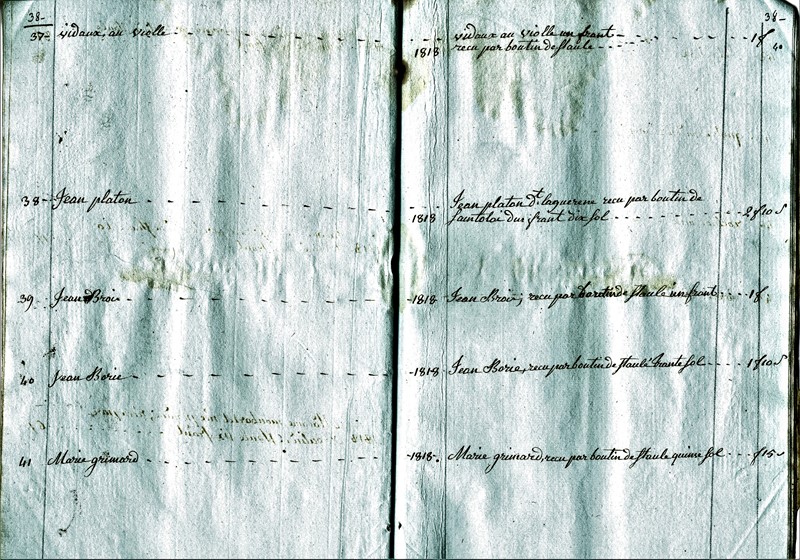 38-
37- vidaux, au violle
38- Jean platon
39 Jean Broi
40 Jean Borie
41 Marie grimard
38-
vidaux au violle un frant 1f
1818 recu par boutin de staulé 40
Jean platon dt laquerene recu par boutin de
1818 dus frant dix sol 2f10s
1818 Jean Broi, recu par boutin de staulé un frant 1f
1818 Jean Borie, recu par boutin de staulé trante sol 1f10s
1818. Marie grimard, recu par boutin de staule quinse sol f15s